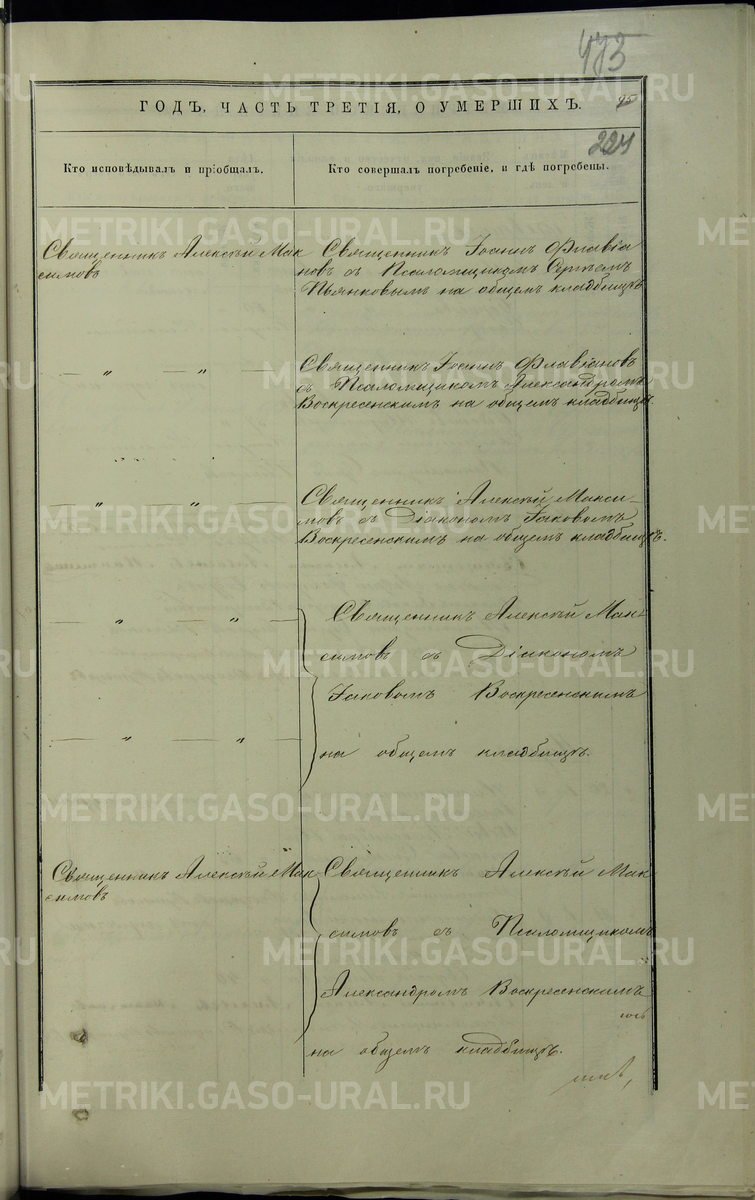 473
ГОДЪ, ЧАСТЬ ТРЕТІЯ, О УМЕРШИХЪ.
224
Кто исповѣдывалъ и пріобщалъ.
Кто совершалъ погребеніе, и гдѣ погребены.
Священникъ Алексѣй Мак
симовъ
Священникъ Іоаннъ Флавіа
новъ съ Псаломщикомъ Сергѣемъ
Пьянковымъ на общемъ кладбищѣ
— „ — „ —
Священникъ Іоаннъ Флавіановъ
съ Псаломщикомъ Александромъ
Воскресенскимъ на общемъ кладбищѣ.
— „ — „ —
Священникъ Алексѣй Макси-
мовъ съ Діакономъ Іаковомъ
Воскресенскимъ на общемъ кладбищѣ.
— „ — „ —
Священникъ Алексѣй Мак-
симовъ съ Діакономъ
Іаковомъ Воскресенскимъ
— „ — „ —
на общемъ кладбищѣ.
Священникъ Алексѣй Мак-
симовъ
Священникъ Алексѣй Мак
симовъ съ Псаломщикомъ
Александромъ Воскресенскимъ
на общемъ кладбищѣ.
METRIKI.GASO-URAL.RU